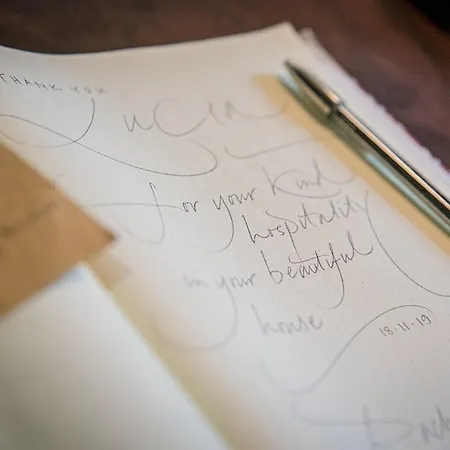 THANK YOU
Lucia
for your kind
hospitality
in your beautiful
house
18.11.19